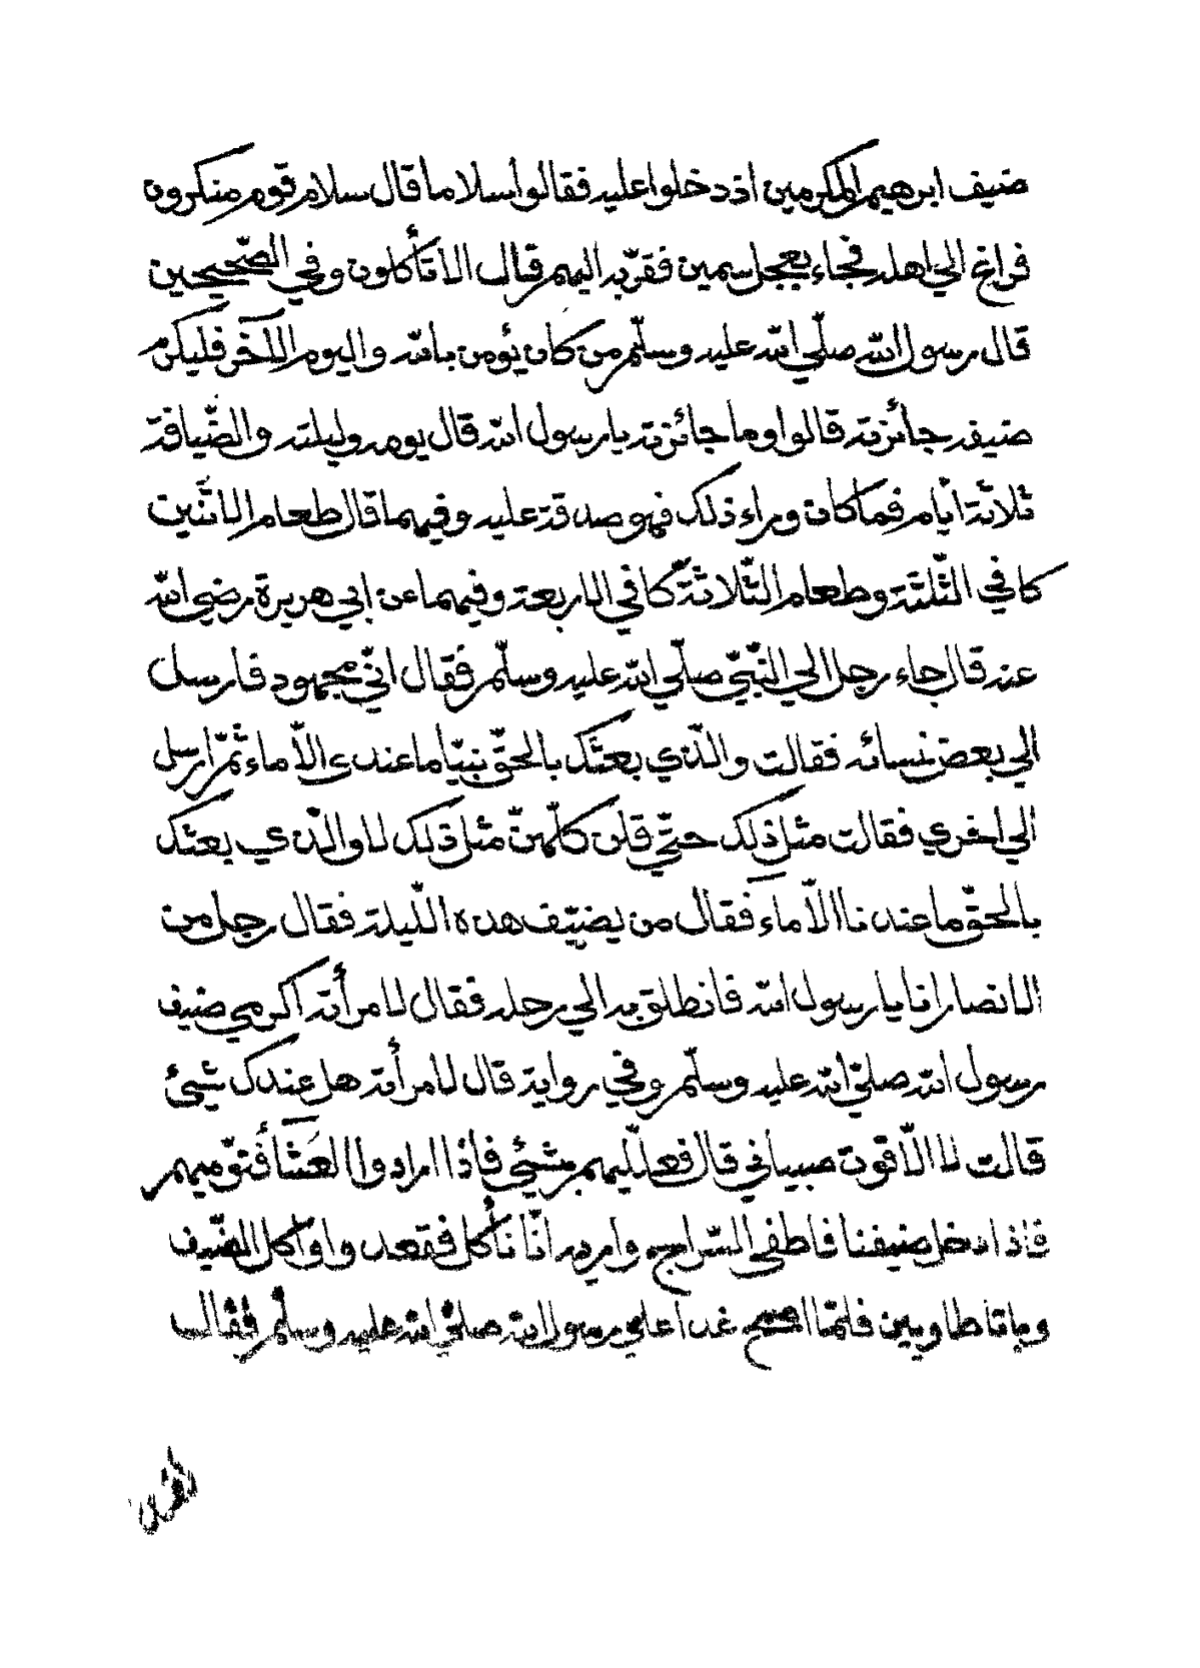 ضيف ابرهيم المكرمين اذ دخلوا عليه فقالوا سلاما قال سلام قوم منكرون
فراغ الي اهله فجاء بعجل سمين فقرّبه اليهم قال الا تأكلون وفي الصّحيحين
قال رسول الله صلّي الله عليه وسلّم من كان يؤمن بالله واليوم الآخر فليكرم
ضيفه جائزته قالوا وما جائزته يا رسول الله قال يومه وليلته والضّيافة
ثلاثة ايّام فما كان وراء ذلك فهو صدقة عليه وفيهما قال طعام الاثنين
كافي الثّلثة وطعام الثّلاثة كافي الاربعة وفيهما عن ابي هريرة رضي الله
عنه قال جاء رجل الي النّبيّ صلّي الله عليه وسلّم فقال انّي مجهود فارسل
الي بعض نسائه فقالت والّذي بعثك بالحقّ نبيّا ما عندى الّا ماء ثمّ ارسل
الي اخري فقالت مثل ذلك حتّي قلن كلّهنّ مثل ذلك لا والّذي بعثك
بالحقّ ما عندنا الّا ماء فقال من يضيّف هذه اللّيلة فقال رجل من
الانصار انا يا رسول الله فانطلق به الي رحله فقال لامرأته اكرمي ضيف
رسول الله صلّي الله عليه وسلّم وفي رواية قال لامرأته هل عندك شيئ
قالت لا الّا قوت صبياني قال فعلّليهم بشيئ فاذا ارادوا العشآ فنوّميهم
فاذا دخل ضيفنا فاطفى السّراج وأريه انّا نأكل فقعدوا واكل الضّيف
وباتا طاويين فلمّا اصبح غدا علي رسول الله صلّي الله عليه وسلّم فقال
لقد